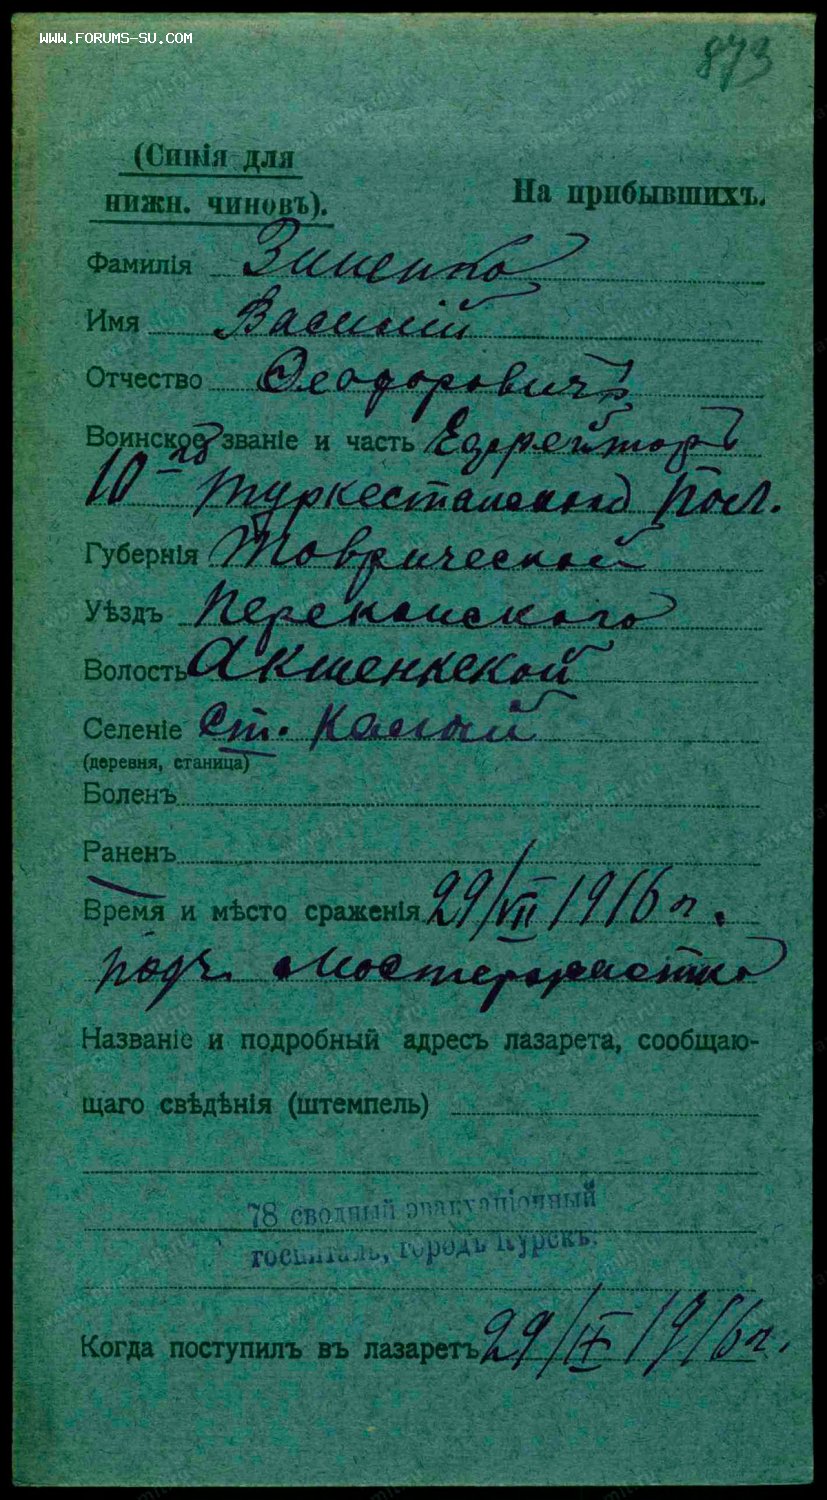 www.forums-su.com
873
(Синія для
нижн. чиновъ).
На прибывшихъ.
Фамилія Зиненко
Имя Василій
Отчество Феодоровичъ
Воинское званіе и часть Ефрейторъ
10-го Туркестанского
Губернія Товрической
Уѣздъ Перекопского
Волость
Селеніе ст.
(деревня, станица)
Боленъ
Раненъ
Время и мѣсто сраженія 29/VII 1916 г.
Названіе и подробный адресъ лазарета, сообщаю-
щаго свѣдѣнія (штемпель)
78 сводный эвакуаціонный
госпиталь, городъ Курскъ.
Когда поступилъ въ лазаретъ 29/IX 1916 г.